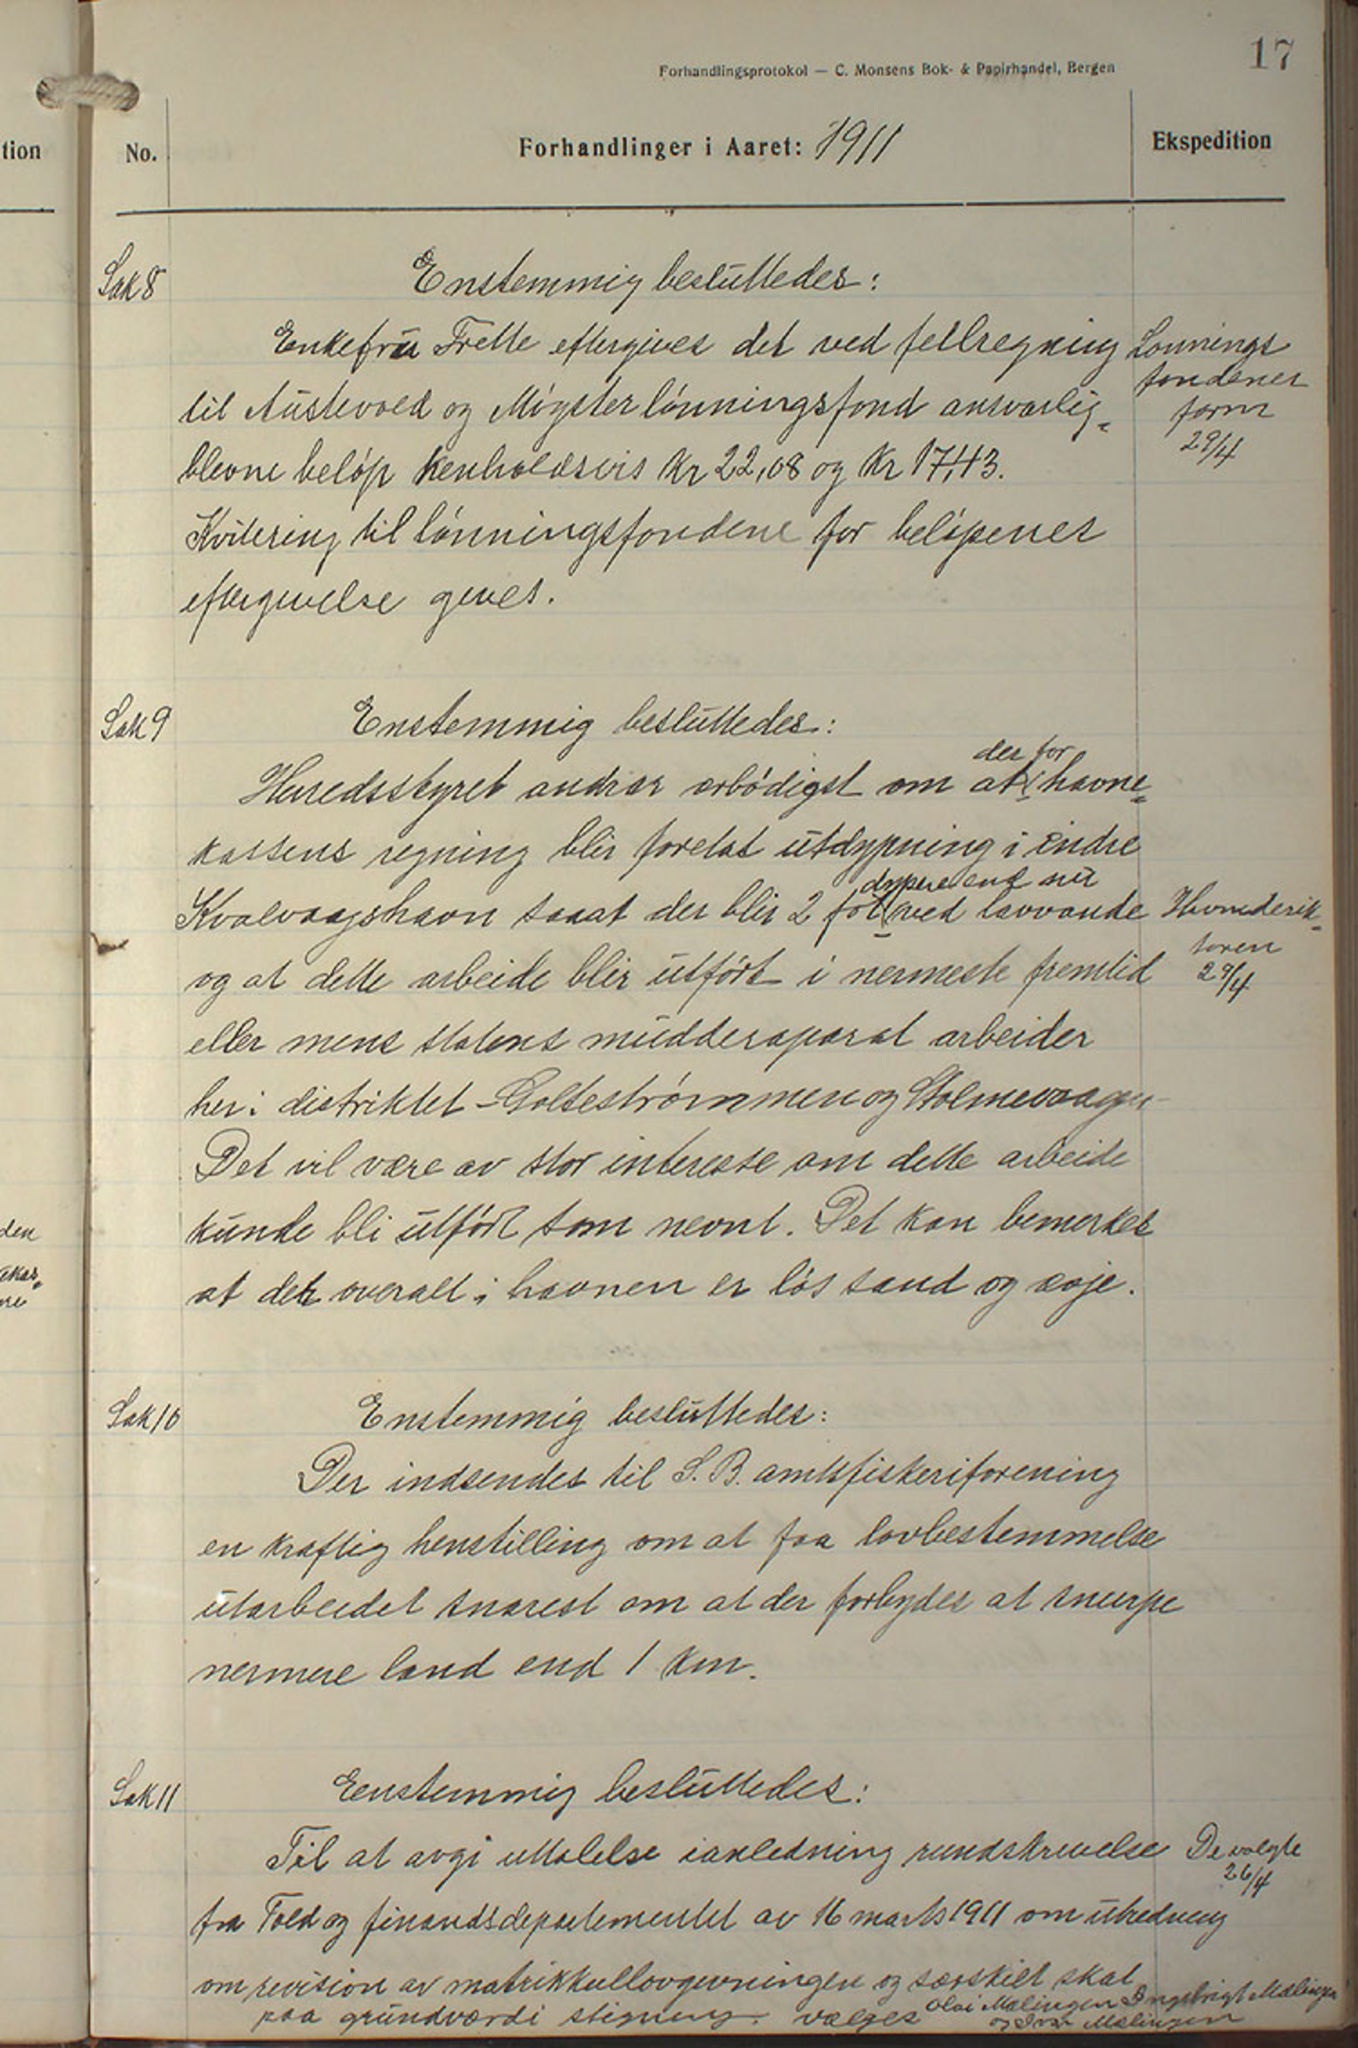 17
Forhandlingsprotokol — C. Monsens Bok- & Papirhandel, Bergen
tion
No.
Forhandlinger i Aaret: 1911
Ekspedition
Sak 8
Enstemmig besluttedes:
Enkefru Trette eftergives det ved feilregning
til Austevold og Møgster lönningsfond ansvarlig=
blevne beløp henholdsvis Kr 22,08 og Kr 17,43.
Kvitering til lönningsfondene for belöpenes
eftergivelse gives.
Lønnings
fondenes
form
29/4
Sak 9
Enstemmig besluttedes:
der for
Herredsstyret andrar ærbödigst om at havne=
kassens regning blir foretat utdypning i indre
dypere end nu
Kvalvaagshavn saaat der blir 2 fot ved lavvande
og at dette arbeide blir utfört i nermeste fremtid
eller mens statens mudderaparat arbeider
her i distriktet - Goltestrømmen og Stolmevaagen -
Det vil være av stor interesse om dette arbeide
kunde bli utfört som nevnt. Det kan bemerkes
at det overalt i havnen er lös sand og ævje.
Havnedirik=
tøren
29/4
den
ekas=
Sak 10
Enstemmig besluttedes:
Der indsendes til S. B. amtsfiskeriforening
en kraftig henstilling om at faa lovbestemmelse
utarbeidet snarest om at der forbydes at snurpe
nermere land end 1 km.
Sak 11
Eenstemmig besluttedes:
Til at avgi uttalelse ianledning rundskrivelse
fra Told og finandsdepartementet av 16 marts 1911 om utredning
om revision av matrikkullovgivningen og særskilt skat
paa grundværdi stigning. vælges Olai Malingen Ingebrigt Mælingen
og Ivar Mælingen
De valgte
26/4